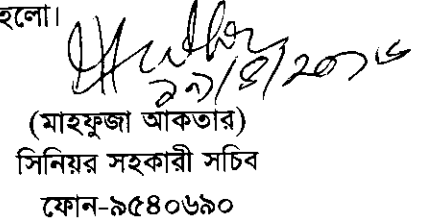 হলো।
২৭/৪/২০১৬
(মাহফুজা আকতার)
সিনিয়র সহকারী সচিব
ফোন-৯৫৪০৬৯০